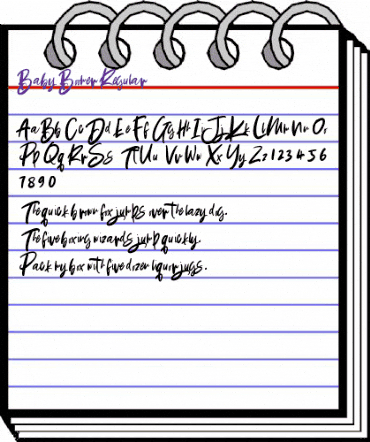 Baby Boner Regular
Aa Bb Cc Dd Ee Ff Gg Hh Ii Jj Kk Ll Mm Nn Oo
Pp Qq Rr Ss Tt Uu Vv Ww Xx Yy Zz 1 2 3 4 5 6
7 8 9 0
The quick brown fox jumps over the lazy dog.
The five boxing wizards jump quickly.
Pack my box with five dozen liquor jugs.